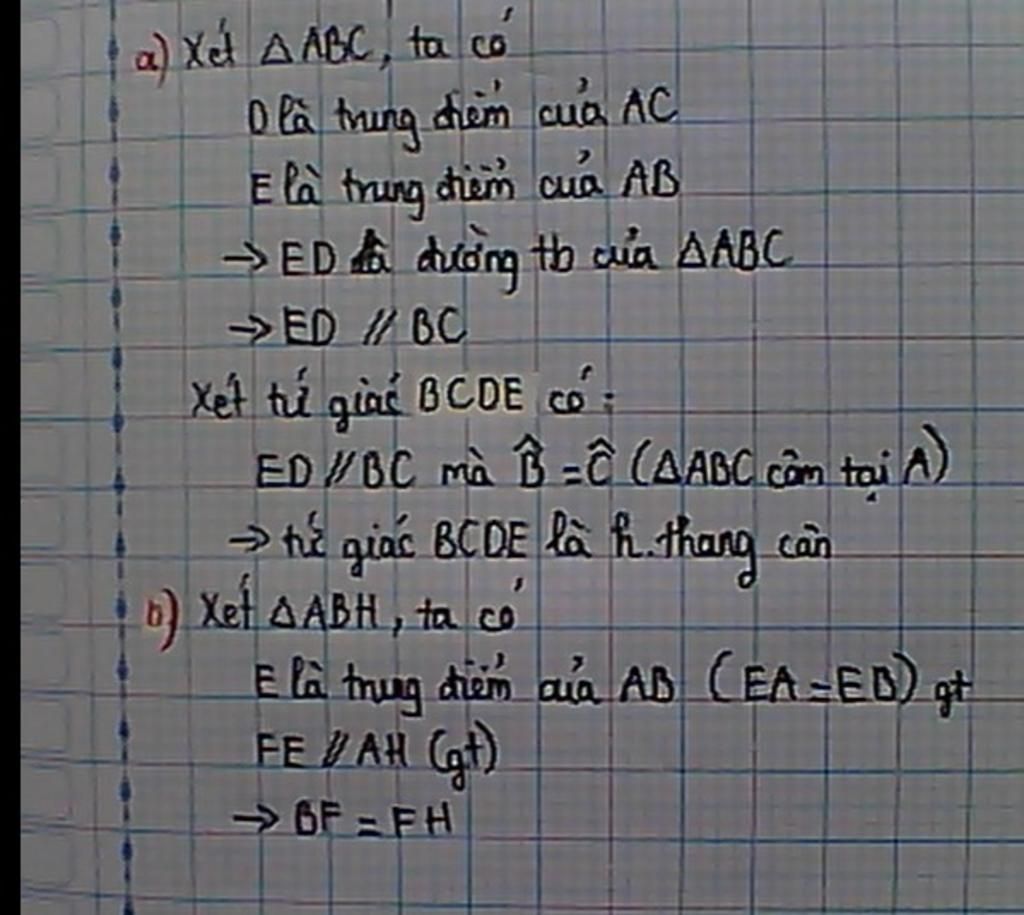 a) Xét △ABC, ta có
D là trung điểm của AC
E là trung điểm của AB
→ ED là đường tb của △ABC
→ ED // BC
Xét tứ giác BCDE có :
ED // BC mà B̂ = Ĉ (△ABC cân tại A)
→ tứ giác BCDE là h.thang cân
b) Xét △ABH, ta có
E là trung điểm của AB (EA = EB) gt
FE // AH (gt)
→ BF = FH